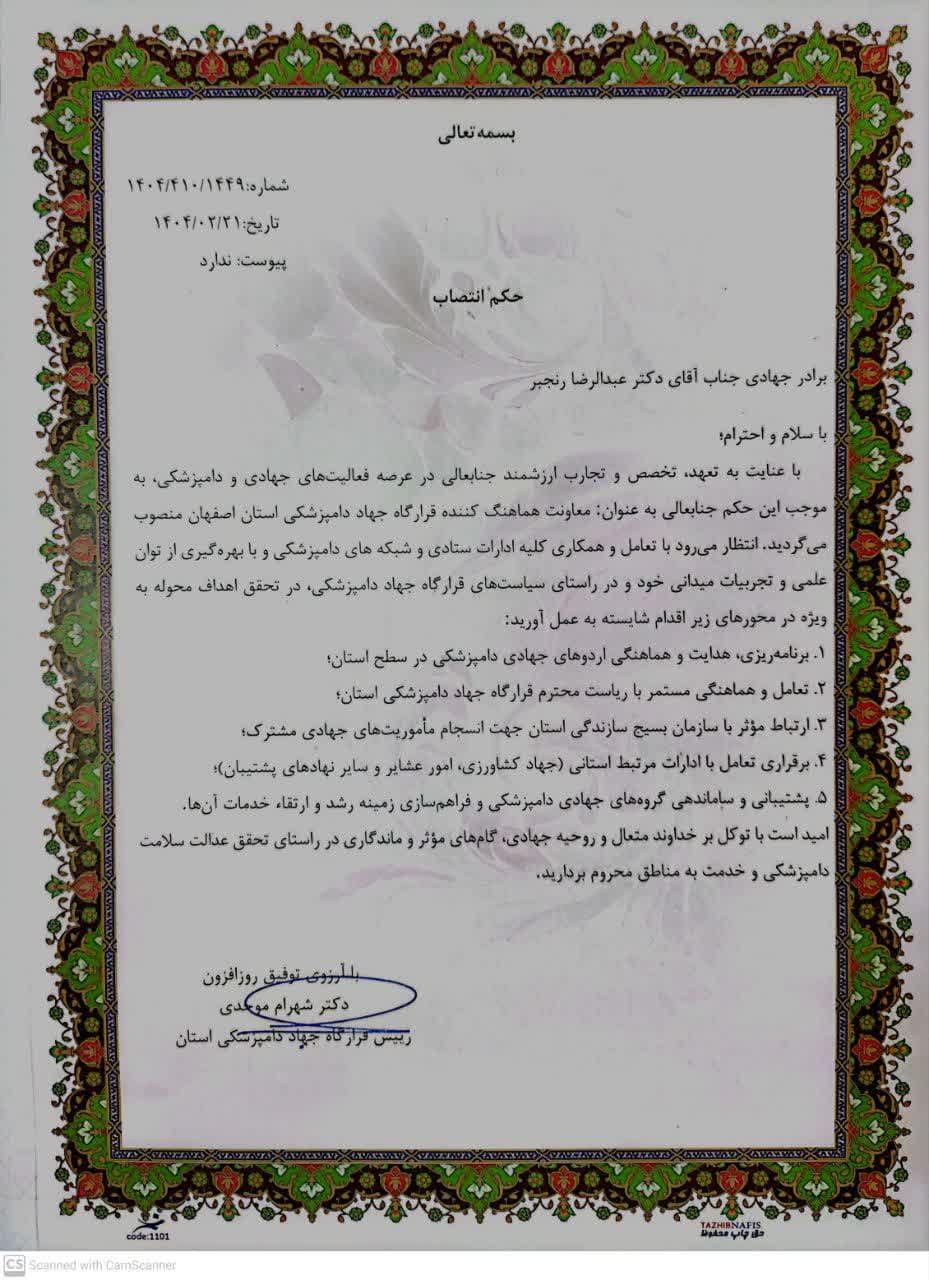 بسمه تعالی
شماره:۱۴۰۴/۴۱۰/۱۴۴۹
تاریخ:۱۴۰۴/۰۲/۲۱
پیوست: ندارد
حکم انتصاب
برادر جهادی جناب آقای دکتر عبدالرضا رنجبر
با سلام و احترام؛
با عنایت به تعهد، تخصص و تجارب ارزشمند جنابعالی در عرصه فعالیت‌های جهادی و دامپزشکی، به
موجب این حکم جنابعالی به عنوان: معاونت هماهنگ کننده قرارگاه جهاد دامپزشکی استان اصفهان منصوب
می‌گردید. انتظار می‌رود با تعامل و همکاری کلیه ادارات ستادی و شبکه های دامپزشکی و با بهره‌گیری از توان
علمی و تجربیات میدانی خود و در راستای سیاست‌های قرارگاه جهاد دامپزشکی، در تحقق اهداف محوله به
ویژه در محورهای زیر اقدام شایسته به عمل آورید:
۱. برنامه‌ریزی، هدایت و هماهنگی اردوهای جهادی دامپزشکی در سطح استان؛
۲. تعامل و هماهنگی مستمر با ریاست محترم قرارگاه جهاد دامپزشکی استان؛
۳. ارتباط مؤثر با سازمان بسیج سازندگی استان جهت انسجام مأموریت‌های جهادی مشترک؛
۴. برقراری تعامل با ادارات مرتبط استانی (جهاد کشاورزی، امور عشایر و سایر نهادهای پشتیبان)؛
۵. پشتیبانی و ساماندهی گروه‌های جهادی دامپزشکی و فراهم‌سازی زمینه رشد و ارتقاء خدمات آن‌ها.
امید است با توکل بر خداوند متعال و روحیه جهادی، گام‌های مؤثر و ماندگاری در راستای تحقق عدالت سلامت
دامپزشکی و خدمت به مناطق محروم بردارید.
با آرزوی توفیق روزافزون
دکتر شهرام موحدی
رییس قرارگاه جهاد دامپزشکی استان
code:1101
TAZHIBNAFIS
حق چاپ محفوظ
CS Scanned with CamScanner